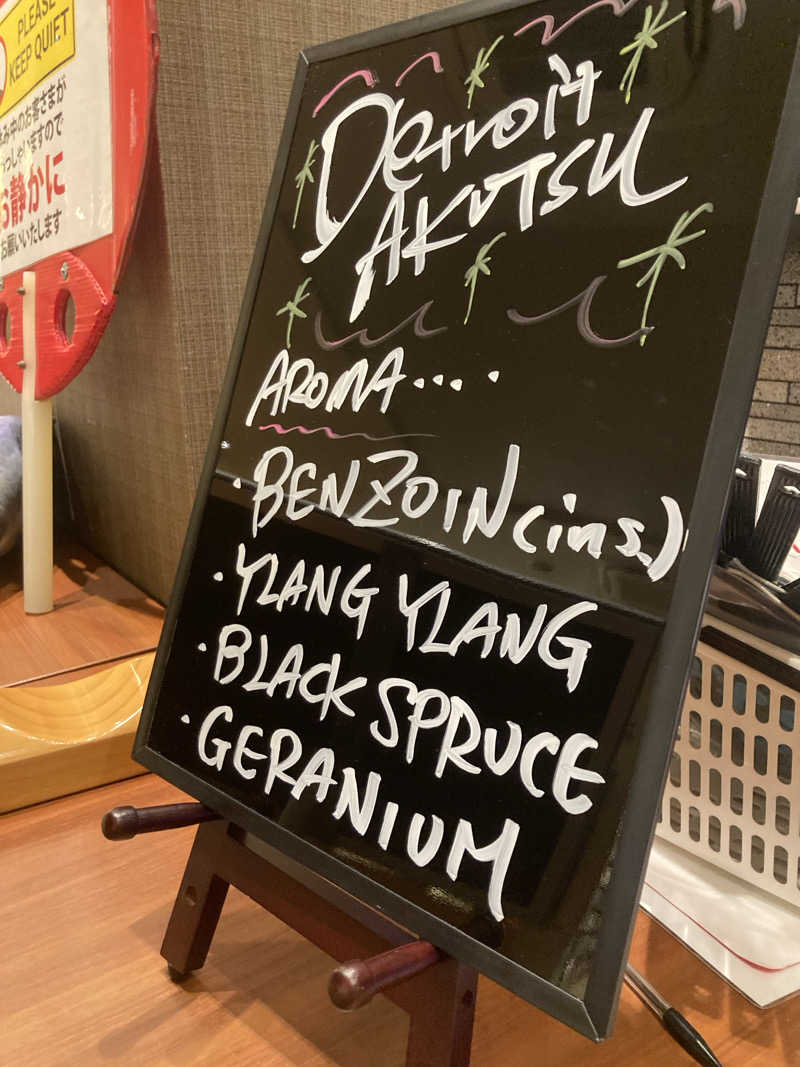 PLEASE
KEEP QUIET
み中のお客さまが
っしゃいますので
お静かに
お願いいたします
Detroit
AKUTSU
AROMA....
・BENZOIN(ins.)
・YLANG YLANG
・BLACK SPRUCE
・GERANIUM